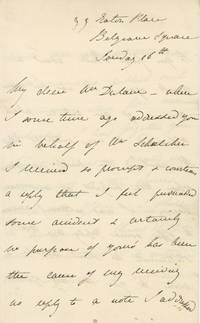 Eaton Place
Belgrave Square
Sunday 16th
My dear Mr Delane - when
I some time ago addressed you
in behalf of Mr Schœlcher
I received so prompt & courteous
a reply that I feel persuaded
some accident & certainly
no purpose of yours has been
the cause of my receiving
no reply to a note I addressed